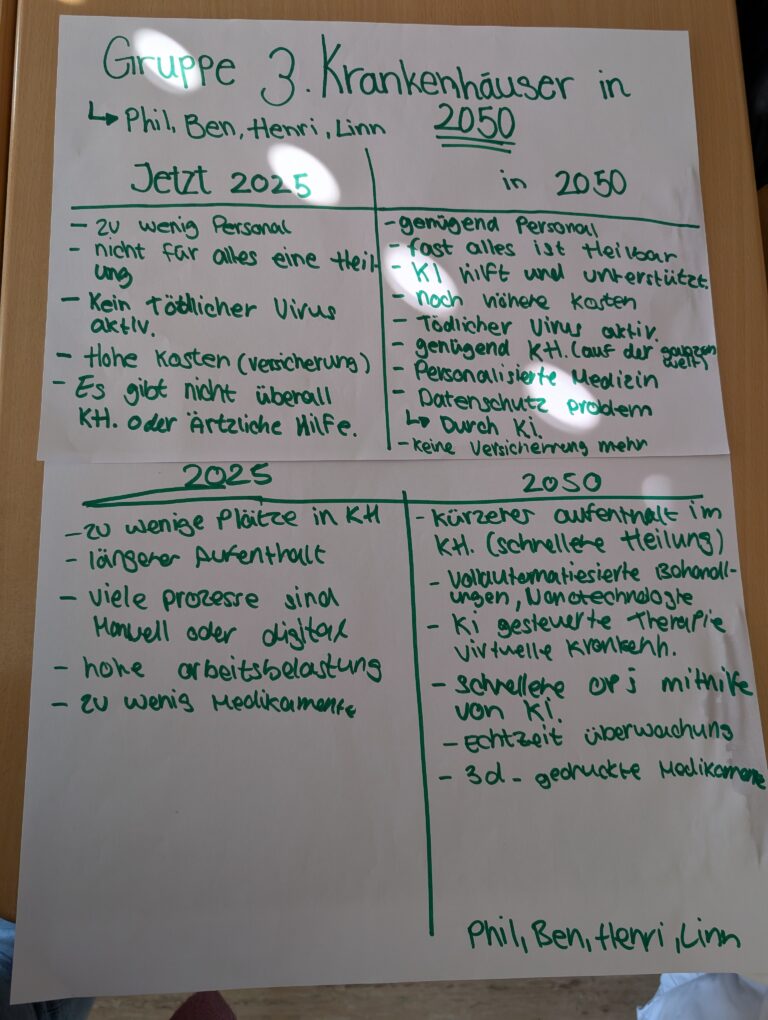 Gruppe 3. Krankenhäuser in
↳ Phil, Ben, Henri, Linn 2050
Jetzt 2025
- zu wenig Personal
- nicht für alles eine Heil
ung
- Kein Tödlicher Virus
aktiv.
- Hohe Kosten (Versicherung)
- Es gibt nicht überall
KH. oder Ärtzliche Hilfe.
in 2050
- genügend Personal
- fast alles ist Heilbar
- KI hilft und unterstützt.
- noch höhere Kosten
- Tödlicher Virus aktiv.
- genügend KH. (auf der ganzen
Welt)
- Personalisierte Medizin
- Datenschutz problem
↳ Durch Ki.
- Keine Versicherrung mehr
2025
- zu wenige Plätze in KH
- längerer Aufenthalt
- viele prozesse sind
Manuell oder digital
- hohe arbeitsbelastung
- zu wenig Medikamente
2050
- Kürzerer aufenthalt im
KH. (schnellere Heilung)
- Vollautomatiesierte Behandl-
ungen, Nanotechnologie
- Ki gesteuerte Therapie
virtuelle Krankenh.
- schnellere OPs mithilfe
von KI.
- Echtzeit überwachung
- 3d- gedruckte Medikamente
Phil, Ben, Henri, Linn